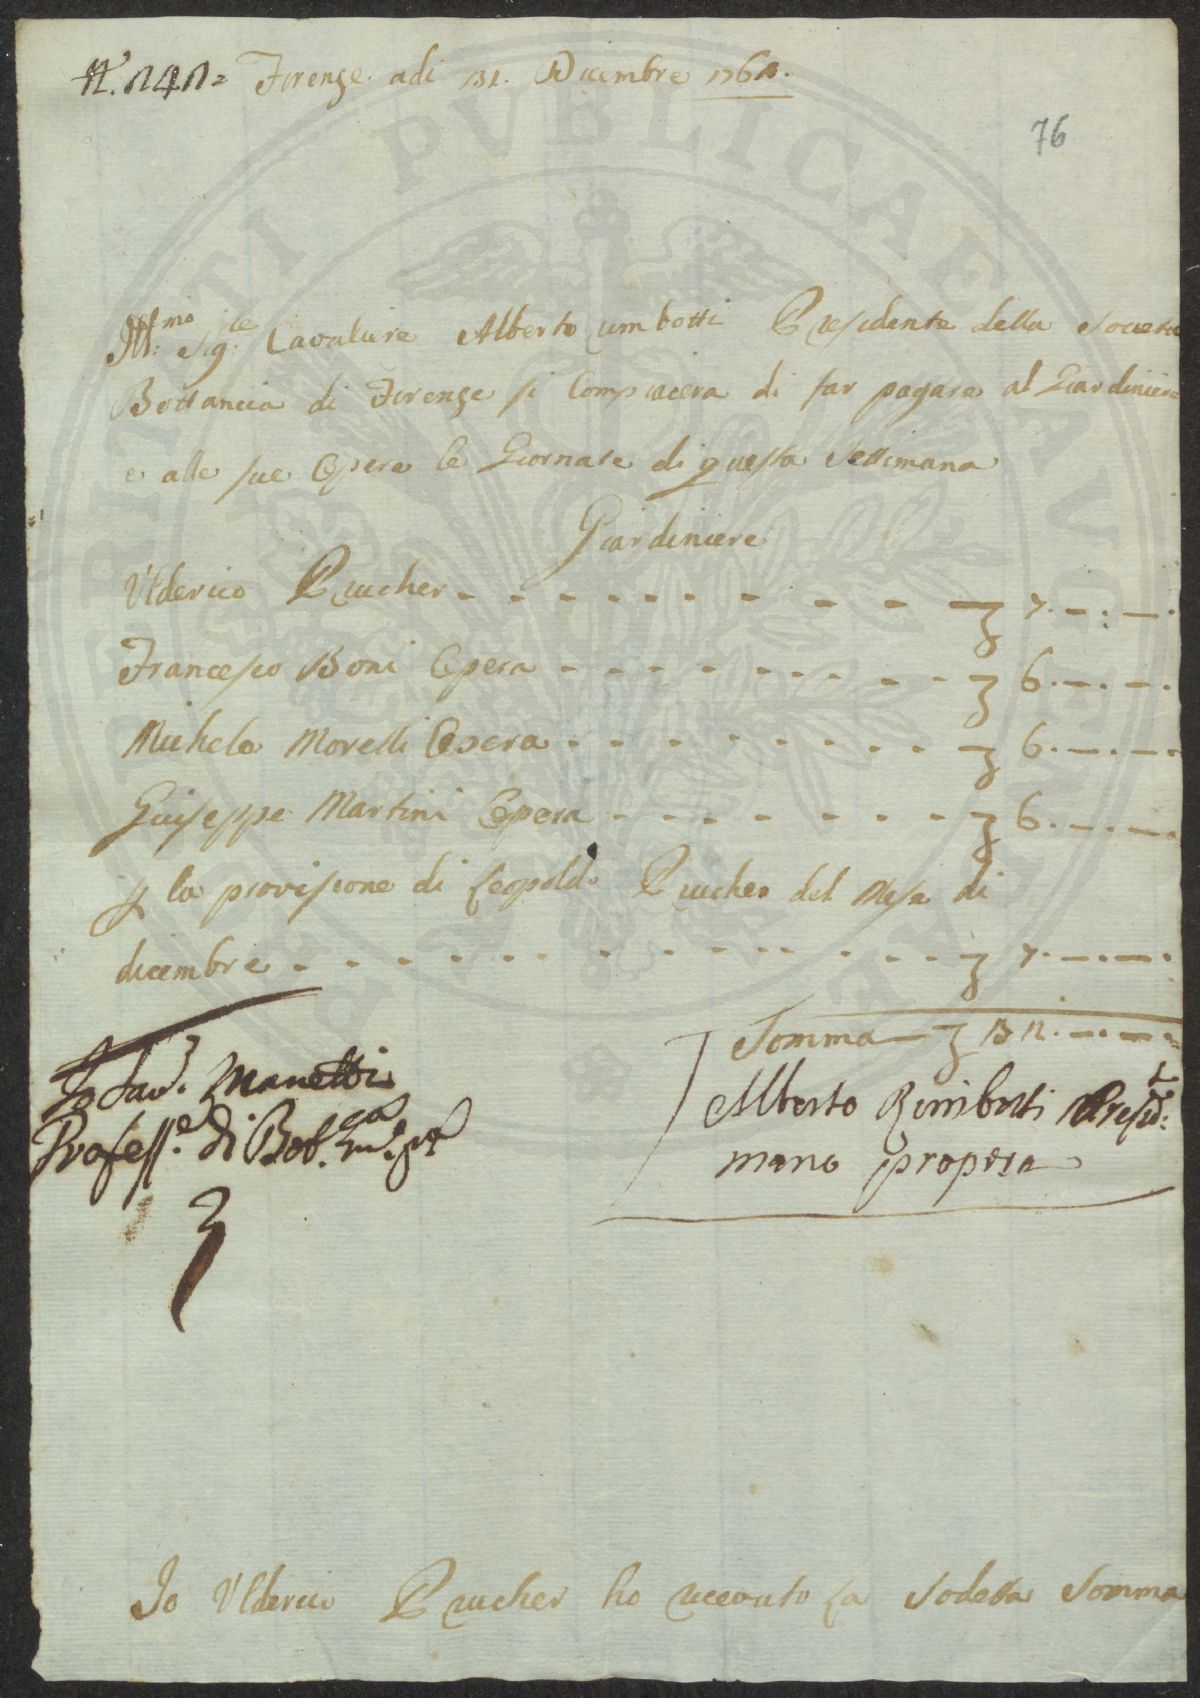 N.° 242= Firenze adi 31. Dicembre 1762.
76
Ill:mo Sig:re Cavaliere Alberto rimbotti Presidente della Societa
Bottanica di Firenze si Compiacera di far pagare al Giardiniere
e alle sue Opere le Giornate di questa Settimana
Giardiniere
Ulderico Prucher - - - - - - - - - - - 7. —. —.
Francesco Boni Opera - - - - - - - - - 6. —. —.
Michele Morelli Opera - - - - - - - - - 6. —. —.
Guiseppe Martini Opera - - - - - - - - 6. —. —.
p la provisione di Leopoldo Prucher del Mese di
dicembre - - - - - - - - - - - - - 7. —. —.
Somma — 32. —. —
Io Sav.° Manetti
Profess.e di Bot.ca m.° p.a
Alberto Rimbotti Presid:te
mano propria
Io Ulderico Prucher ho riceouto la Sodetta Somma
PUBLICAE